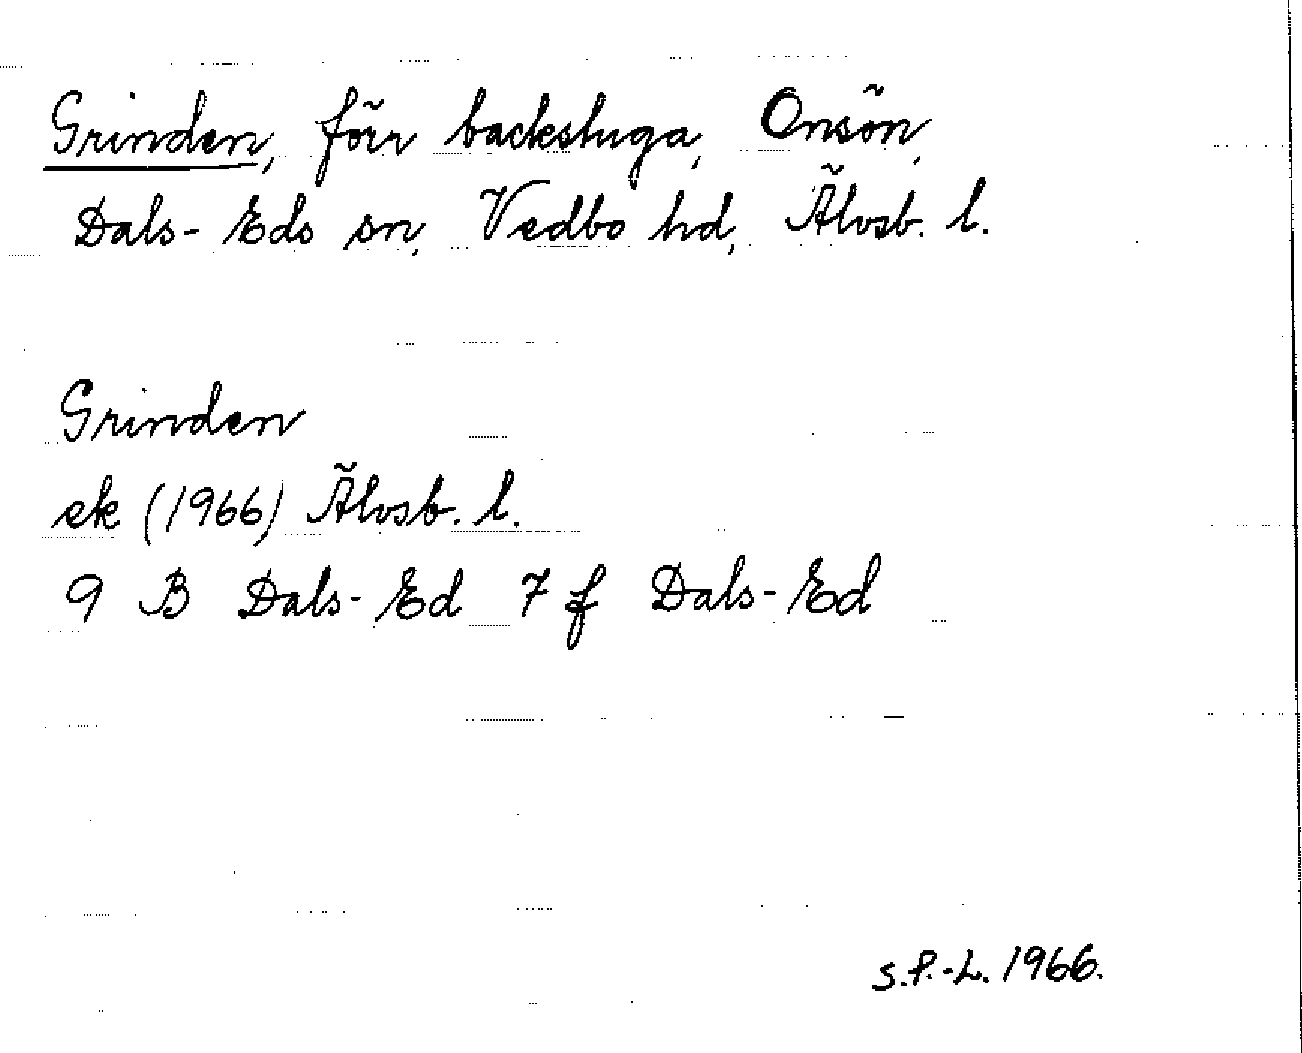 Grinden, förr backstuga, Onsön,
Dals-Eds sn, Vedbo hd, Älvsb. l.
Grinden
ek (1966) Älvsb. l.
9 B Dals-Ed 7 f Dals-Ed
S.P.-L. 1966.